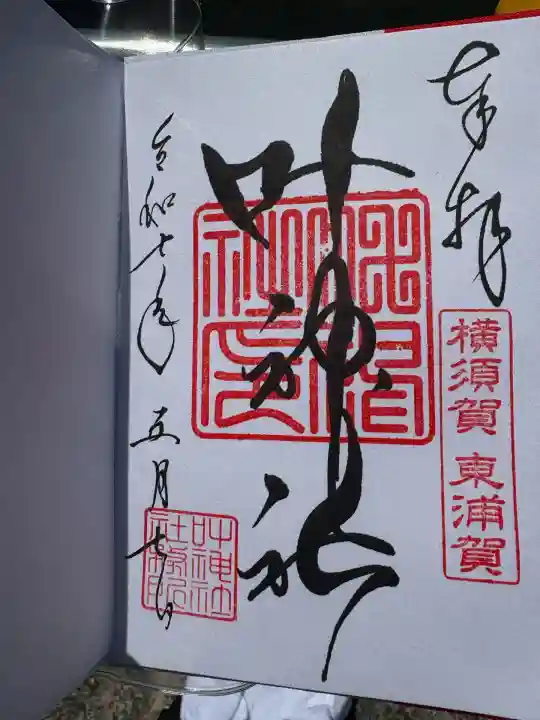 奉拝
横須賀 東浦賀
叶神社
令和七年 五月七日
叶神社
社務所